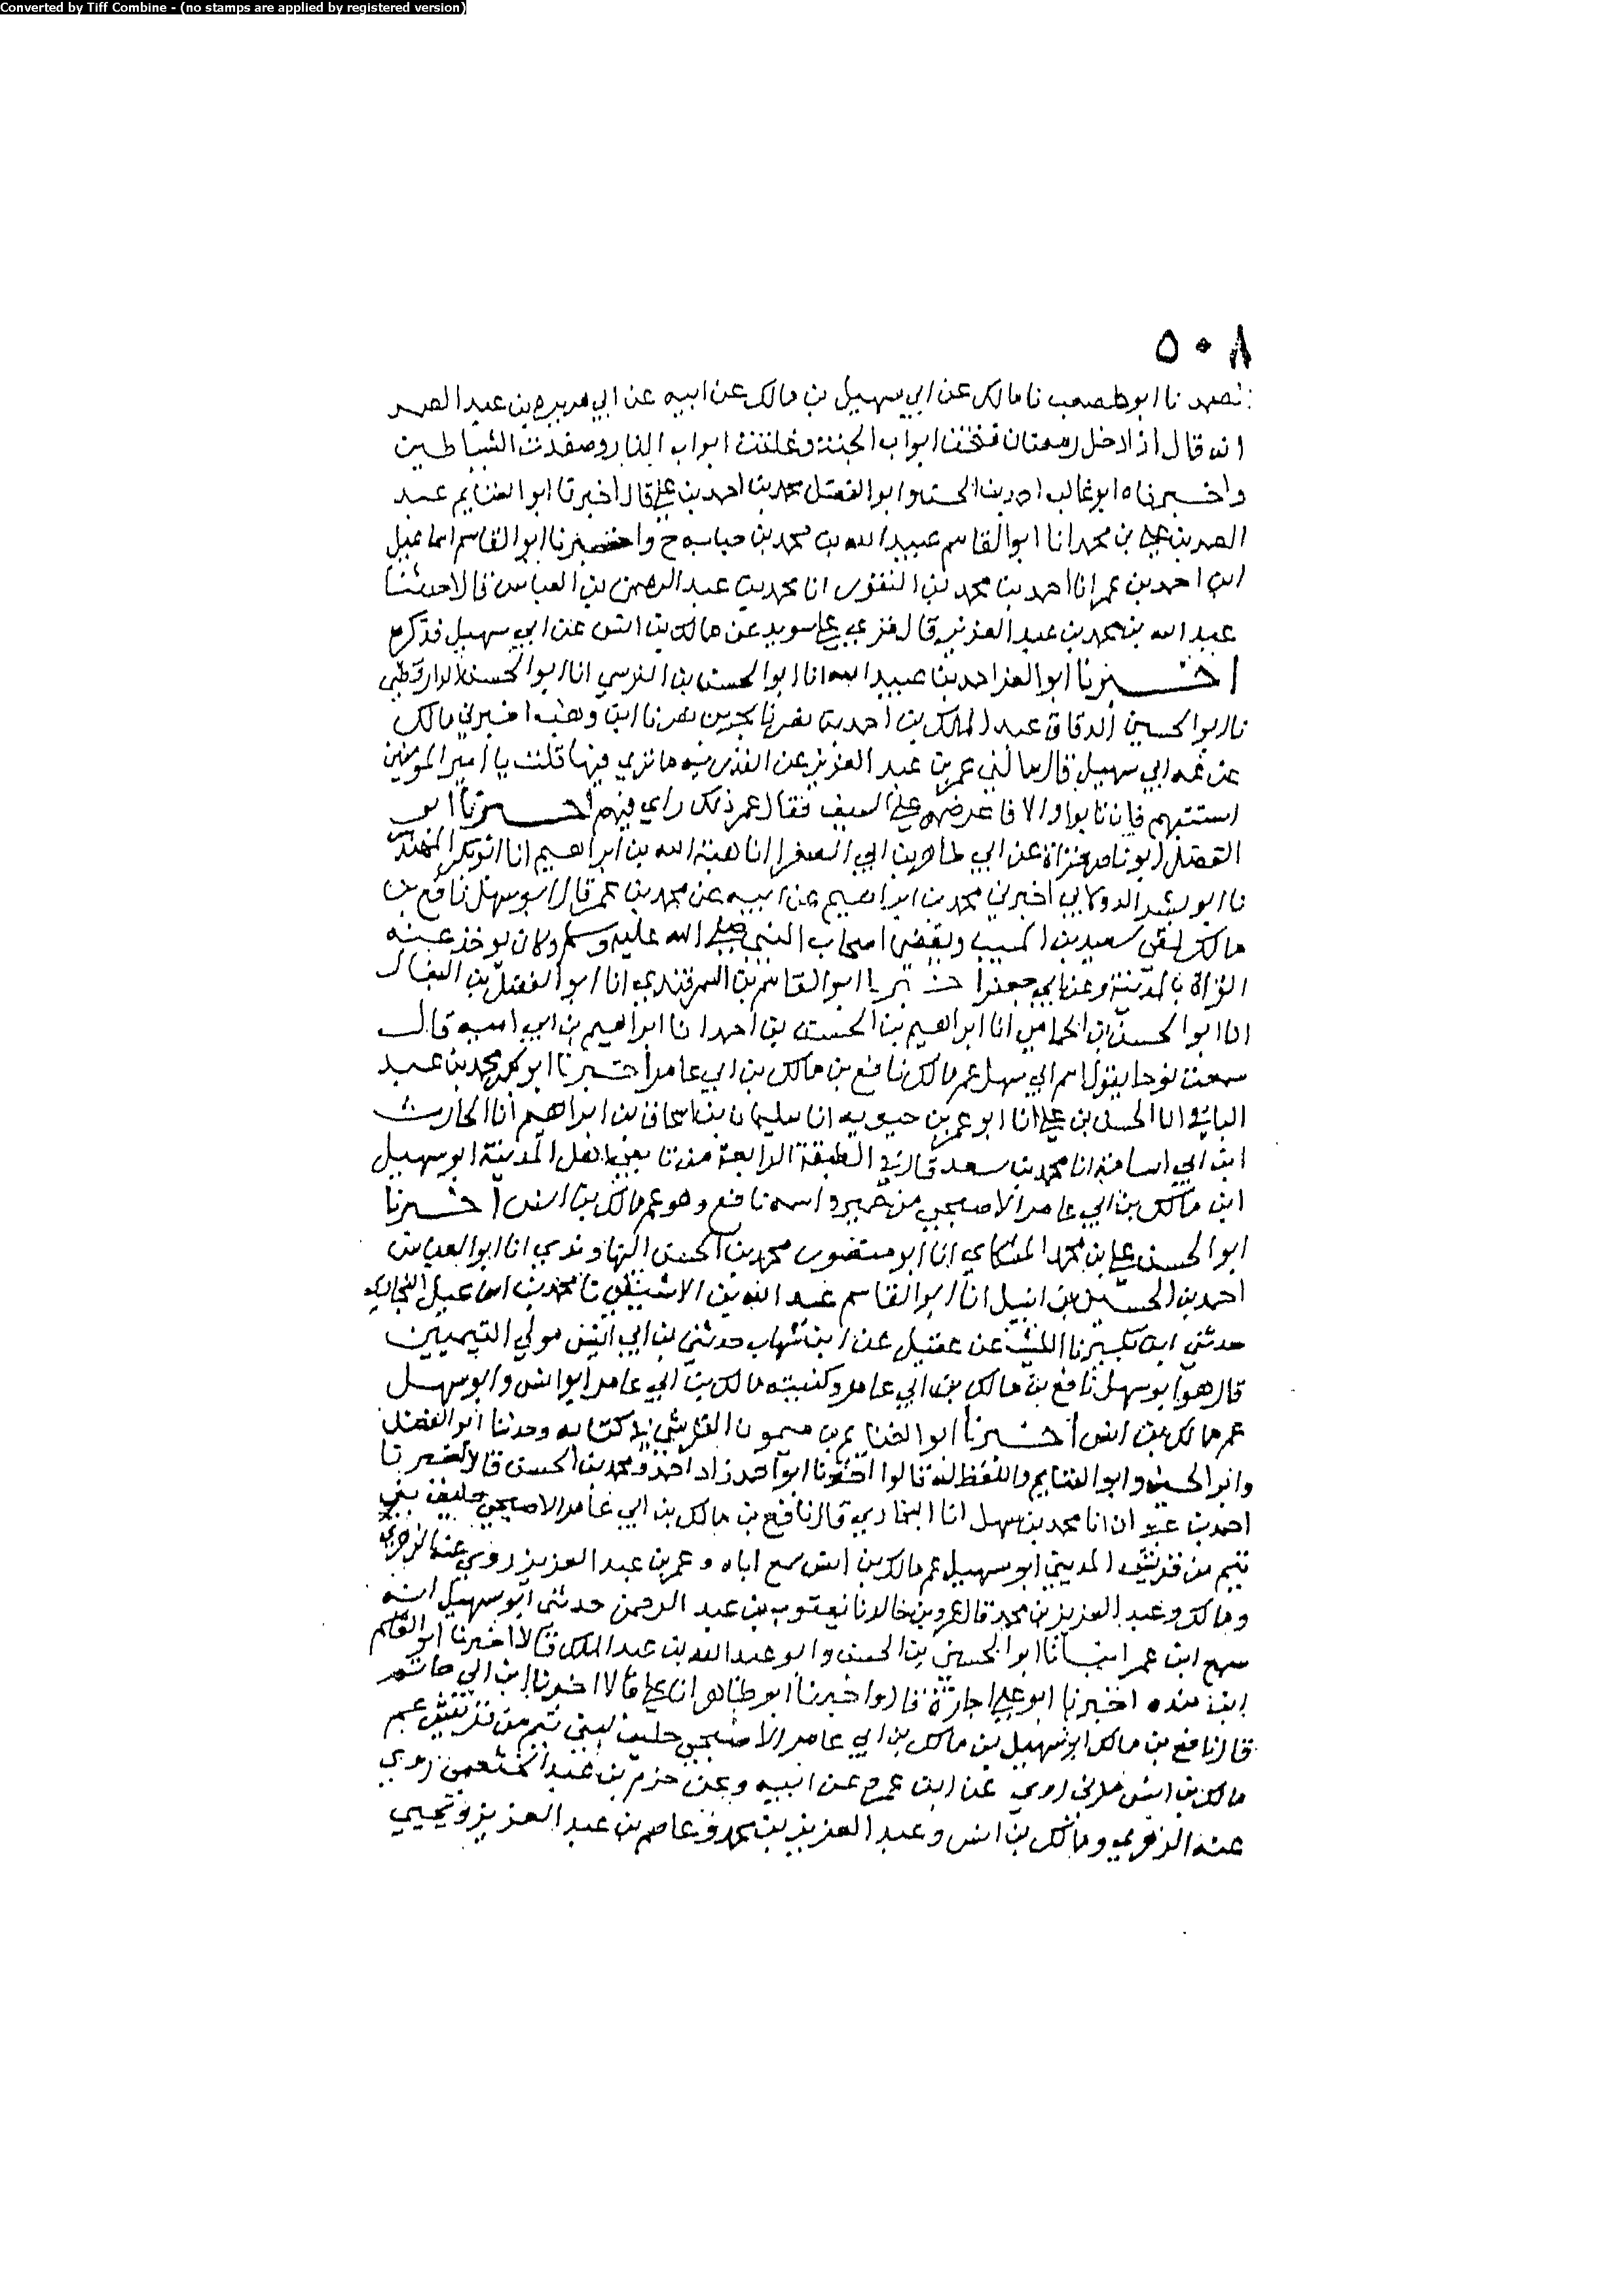 Converted by Tiff Combine - (no stamps are applied by registered version)
٥٠٨
نا ابو مصعب نا مالك عن ابي سهيل بن مالك عن ابيه عن ابي هريره بن عبد الصمد
انه قال اذا دخل رمضان فتحت ابواب الجنة وغلقت ابواب النار وصفدت الشياطين
واخبرناه ابو غالب احمد بن الحسن وابو الفضل محمد بن احمد بن علي قال اخبرنا ابو الغنايم عبد
الصمد بن علي بن محمد انا ابو القاسم عبيد الله بن محمد بن حبابه ح واخبرنا ابو القاسم اسماعيل
ابن احمد بن عمر انا احمد بن محمد بن النقور انا محمد بن عبد الرحمن بن العباس قالا حدثنا
عبد الله بن محمد بن عبد العزيز قال قري علي سويد عن مالك بن انس عن ابي سهيل فذكره
اخبرنا ابو العز احمد بن عبيد الله انا ابو الحسن بن النرسي انا ابو الحسن الدارقطني
نا ابو الحسين الدقاق عبد الملك بن احمد بن نصر نا بحر بن نصر نا ابن وهب اخبرني مالك
عن عمه ابي سهيل قال سالني عمر بن عبد العزيز عن القدريه ما تري فيها قلت يا امير المومنين
استتبهم فان تابوا والا فاعرضهم علي السيف فقال عمر ذلك راي فيهم اخبرنا ابو
الفضل بن ناصر قراة عن ابي طاهر بن ابي الصقر انا هبة الله بن ابراهيم انا ابو بكر المهندس
نا ابو بشر الدولابي اخبرني محمد بن ابراهيم عن ابيه عن محمد بن عمر قال ابو سهيل نافع بن
مالك لقي سعيد بن المسيب وبعض اصحاب النبي صلى الله عليه وسلم وكان يوخذ عنه
القراة بالمدينة وعن ابي جعفر اخبرنا ابو القاسم بن السمرقندي انا ابو الفضل بن البقال
انا ابو الحسن بن الحمامي انا ابراهيم بن الحسن بن احمد انا ابراهيم بن ابي اميه قال
سمعت نوحا يقول اسم ابي سهيل عم مالك نافع بن مالك بن ابي عامر اخبرنا ابو بكر محمد بن عبد
الباقي انا الحسن بن علي انا ابو عمر بن حيويه انا سليمان بن اسحاق بن ابراهيم انا الحارث
ابن ابي اسامة انا محمد بن سعد قال في الطبقة الرابعة من تابعي اهل المدينة ابو سهيل
ابن مالك بن ابي عامر الاصبحي من حمير واسمه نافع وهو عم مالك بن انس اخبرنا
ابو الحسن علي بن محمد المشكاي انا ابو منصور محمد بن الحسن النهاوندي انا ابو العباس
احمد بن الحسين بن زنبيل انا ابو القاسم عبد الله بن الاشقر نا محمد بن اسماعيل البخاري
حدثني ابن بكير نا الليث عن عقيل عن ابن شهاب حدثني بن ابي انس مولي التيميين
قال هو ابو سهيل نافع بن مالك بن ابي عامر وكنيته مالك بن ابي عامر ابو انس وابو سهيل
عم مالك بن انس اخبرنا ابو الغنايم بن ميمون القرشي في كتابه وحدثنا ابو الفضل
وابو الحسين وابو الغنايم واللفظ له قالوا اخبرنا ابو احمد زاد احمد ومحمد بن الحسن قالا اخبرنا
احمد بن عبدان انا محمد بن سهل انا البخاري قال نافع بن مالك بن ابي عامر الاصبحي حليف بني
تيم من قريش المديني ابو سهيل عم مالك بن انس سمع اباه وعمر بن عبد العزيز روي عنه الزهري
ومالك وعبد العزيز بن محمد قال عمرو بن خالد نا يعقوب بن عبد الرحمن حدثني ابو سهيل انه
سمع ابن عمر انبانا ابو الحسين بن الحسن وابو عبد الله بن عبد الملك قالا اخبرنا ابو القاسم
ابن منده اخبرنا ابو علي اجازة قال واخبرنا ابو طاهر انا علي قالا اخبرنا ابن ابي حاتم
قال نافع بن مالك ابو سهيل بن مالك بن ابي عامر الاصبحي حليف لبني تيم من قريش عم
مالك بن انس روي عن ابن عمر وعن ابيه وعن حزم بن عبد الخثعمي روي
عنه الزهري ومالك بن انس وعبد العزيز بن محمد وعاصم بن عبد العزيز ويحيي